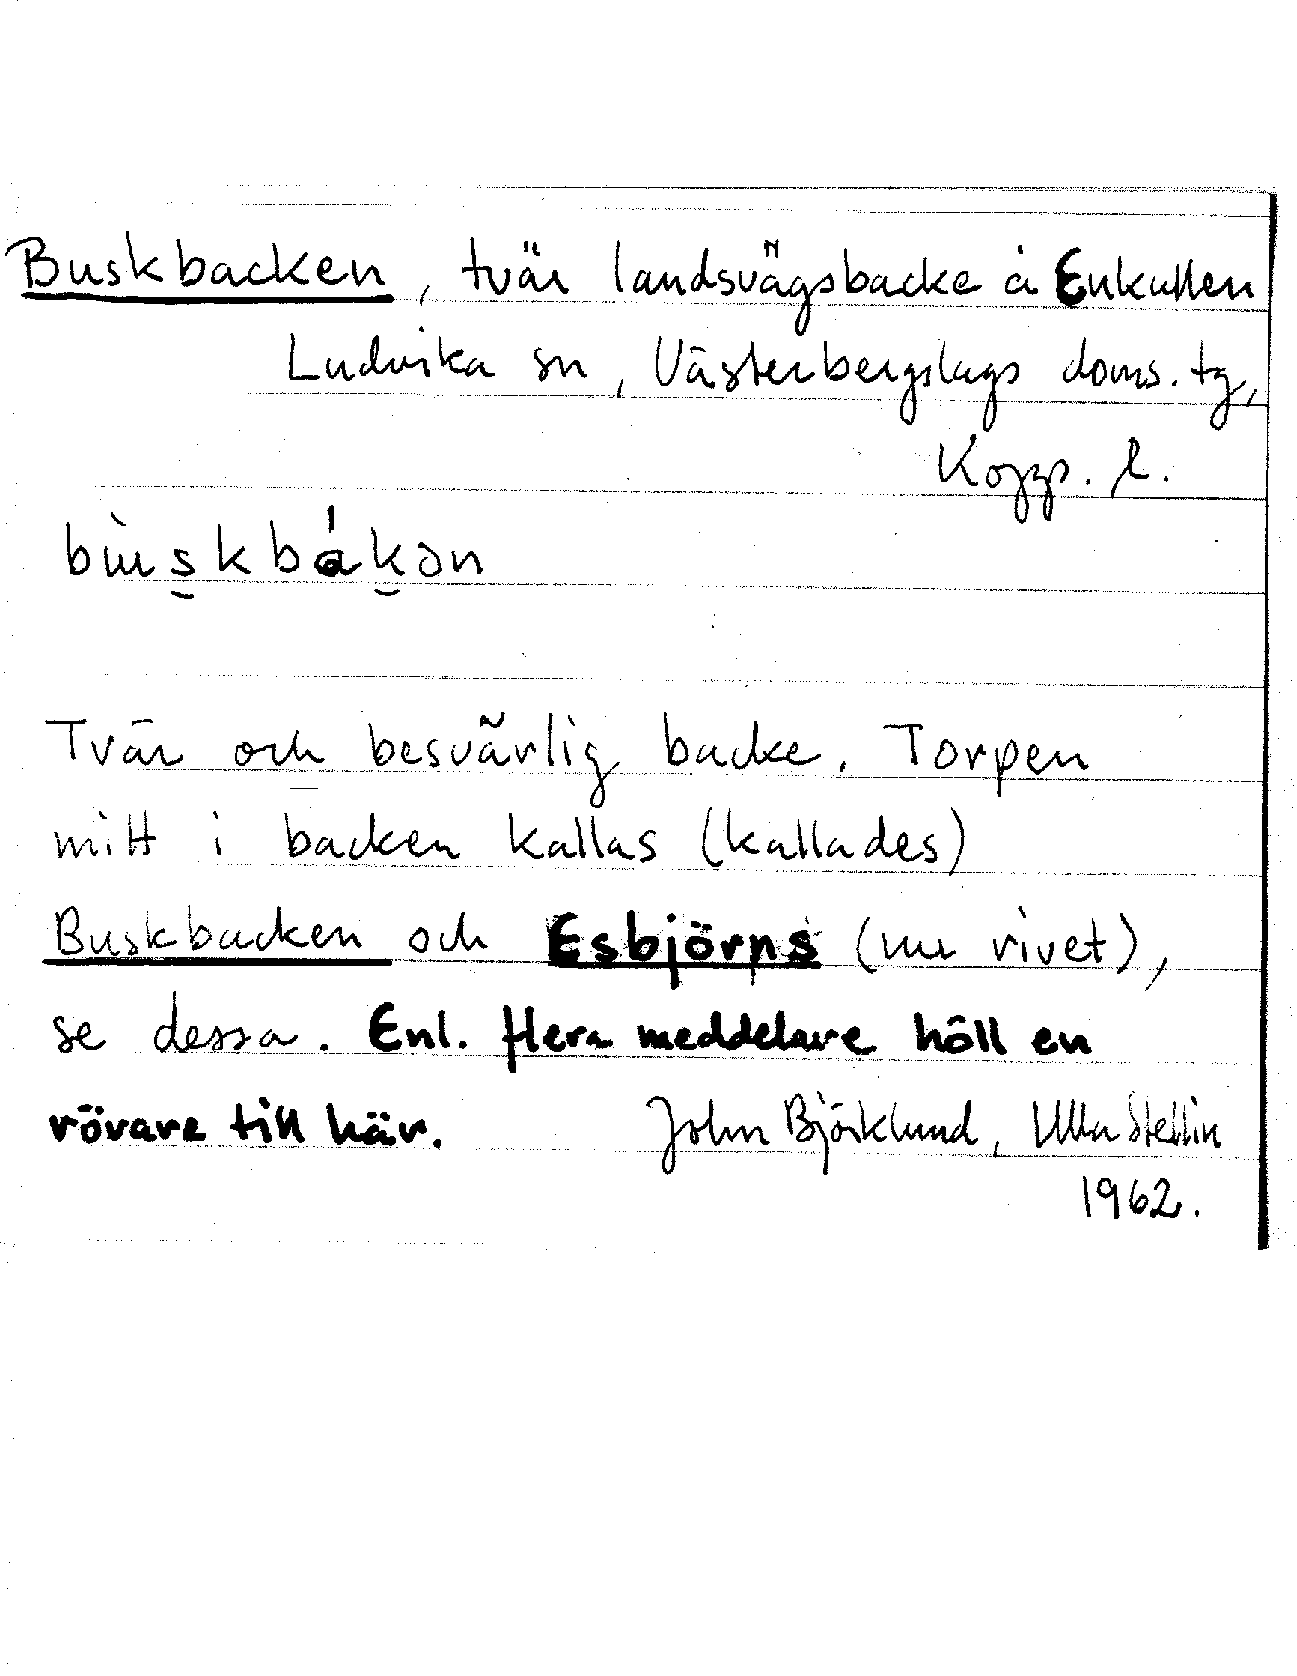 Buskbacken, tvär landsvägsbacke å Enkullen
Ludvika sn, Västerbergslags doms. tg,
Kopp. l.
bu̇̀skbákən
Tvär och besvärlig backe. Torpen
mitt i backen kallas (kallades)
Buskbacken och Esbjörns (nu rivet),
se dessa. Enl. flera meddelare höll en
rövare till här. John Björklund, Ulla Stellin
1962.